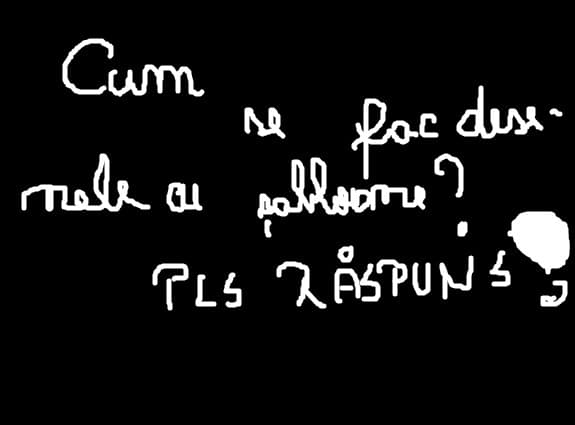 Cum
se fac dese-
nele cu șabloane?
PLS RÅSPUNS